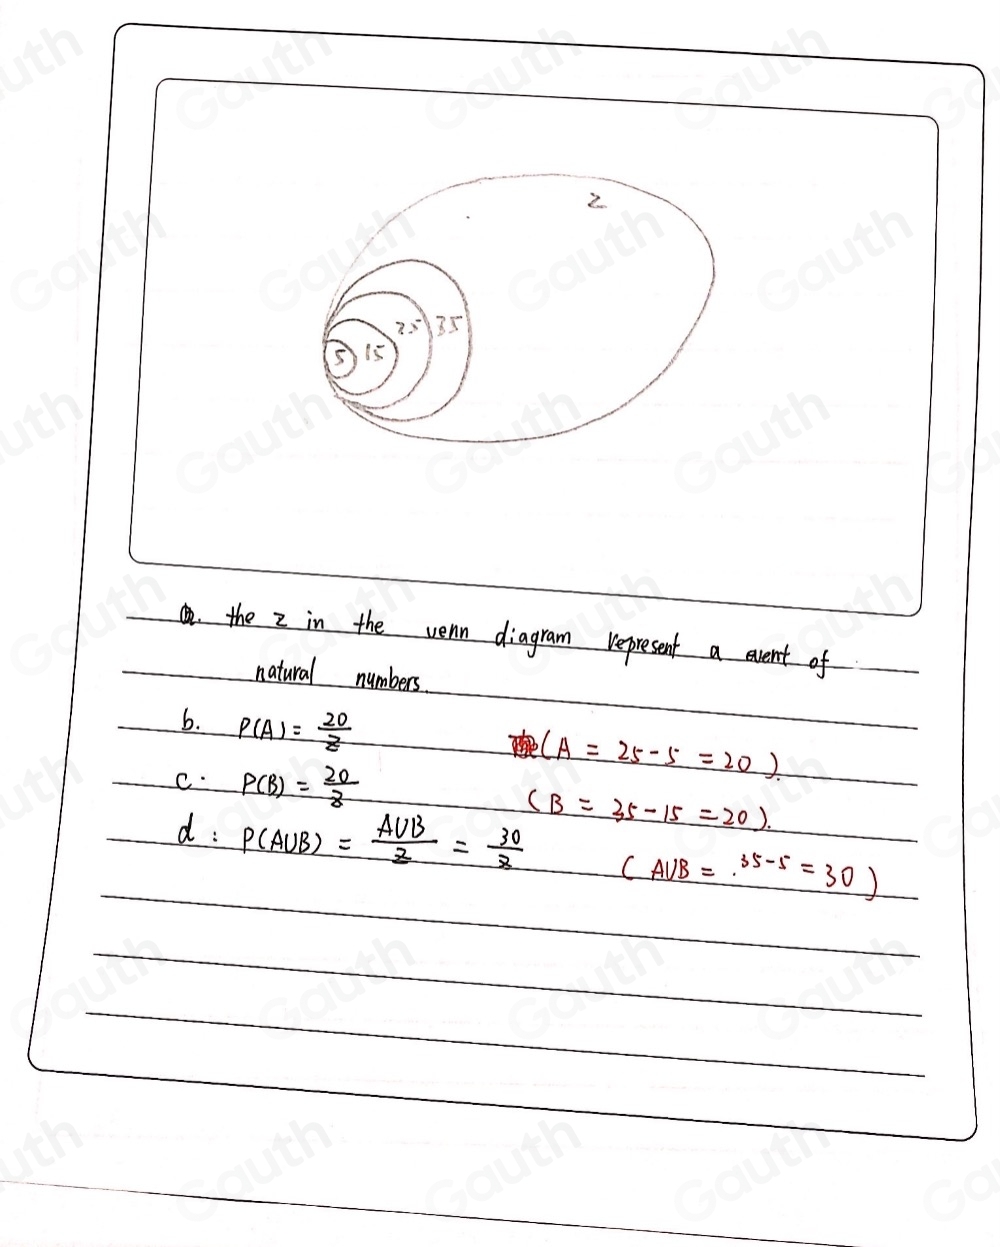 z
5 15 25 35
a. the z in the venn diagram represent a event of
natural numbers.
b. P(A) = 20/z (A = 25-5 = 20).
c. P(B) = 20/z (B = 35-15 = 20).
d: P(AUB) = AUB/z = 30/z (AUB = 35-5 = 30)
Gauth